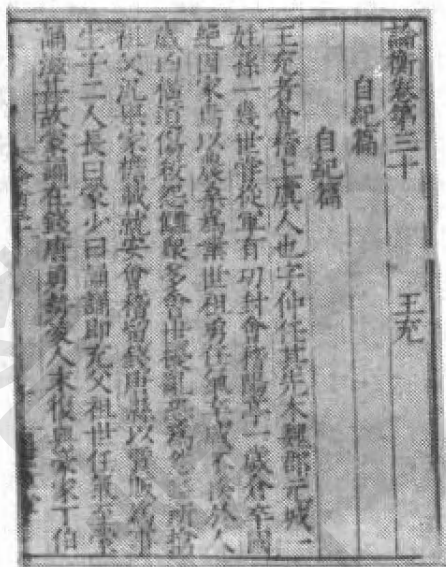 論衡卷第三十 王充
自紀篇
自紀篇
王充者會稽上虞人也字仲任其先本魏郡元城一
姓孫一幾世嘗從軍有功封會稽陽亭一歲倉卒國
絕因家焉以農桑爲業世祖勇任氣卒咸不揆於人
歲凶橫道傷殺怨讎衆多會世擾亂恐爲怨讎所擒
祖父汎舉家檐載就安會稽留錢唐縣以賈販爲事
生子二人長曰蒙少曰誦誦即充父祖世任氣至蒙
誦滋甚故蒙誦在錢唐勇勢凌人末復與豪家丁伯